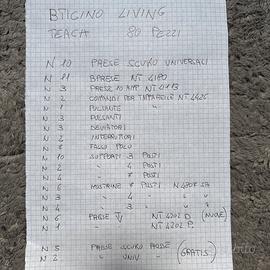 BTICINO LIVING
TEACH 80 PEZZI
N 10 PRESE SCURO UNIVERSALI
N 11 BPRESE NT 4180
N 3 PRESE 10 AMP NT 4113
N 2 COMANDI PER TAPPARELLE NT 4426
N 1 PULSANTE "
N 3 PULSANTI
N 3 DEVIATORI
N 2 INTERRUTTORI
N 6 FALSO POLO
N 10 SUPPORTI 3 POSTI
N 2 " 4 POSTI
N " 7 POSTI
N 6 MOSTRINE 7 POSTI
N 3 " 4 "
N 4 " 3 "
N 6 PRESE TV NT 4202 D (NUOVE)
N 1 " NT 4202 P.
N 5 PRESE SCURO
N 2 " UNIV. (GRATIS)